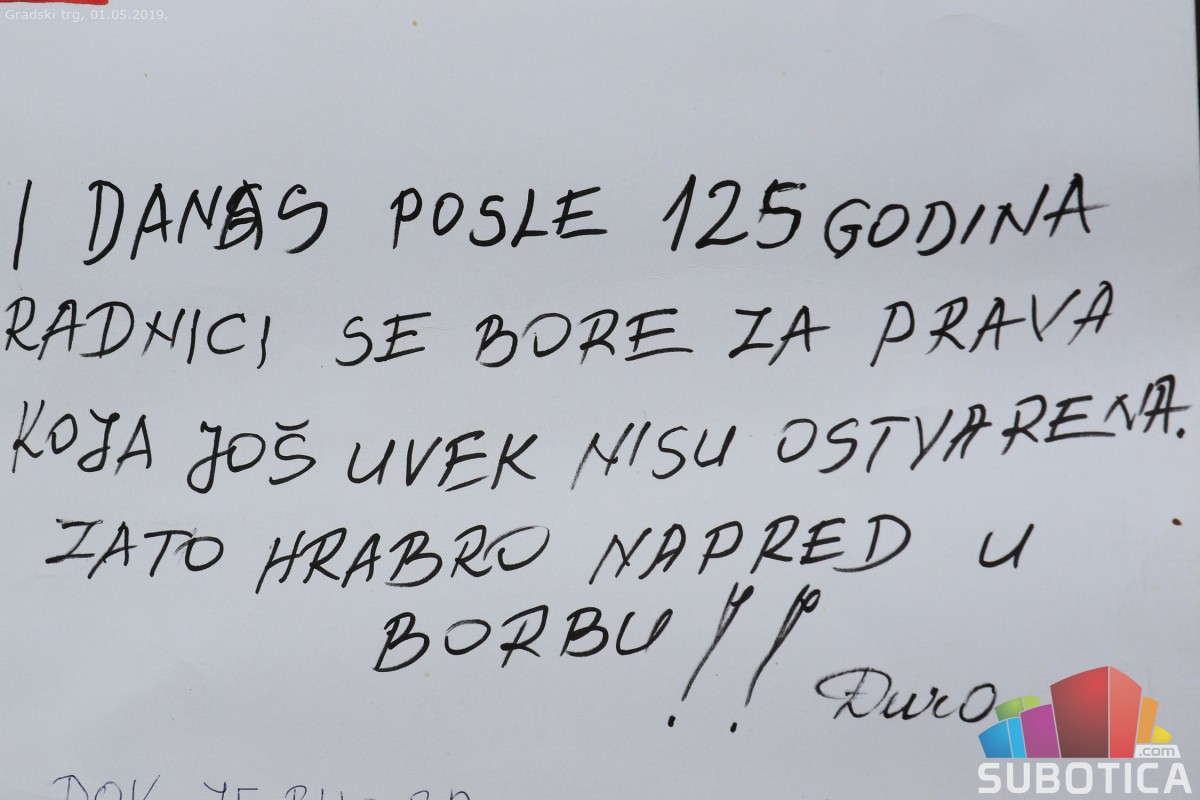 Gradski trg, 01.05.2019.
I DANAS POSLE 125 GODINA
RADNICI SE BORE ZA PRAVA
KOJA JOŠ UVEK NISU OSTVARENA.
ZATO HRABRO NAPRED U
BORBU!!
Đuro
DOK JE
SUBOTICA
.com